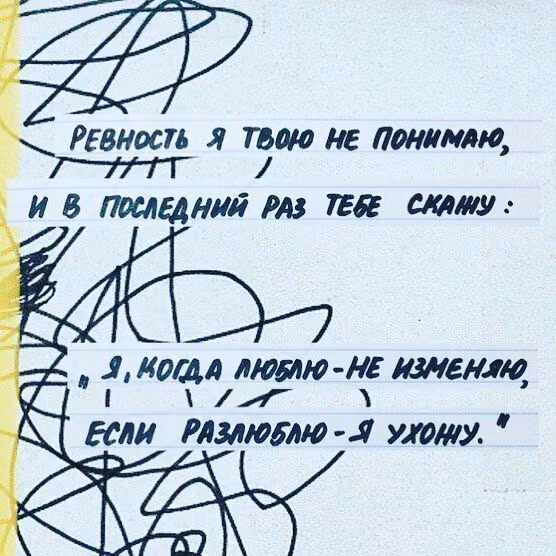 РЕВНОСТЬ Я ТВОЮ НЕ ПОНИМАЮ,
И В ПОСЛЕДНИЙ РАЗ ТЕБЕ СКАЖУ :
„ Я, КОГДА ЛЮБЛЮ - НЕ ИЗМЕНЯЮ,
ЕСЛИ РАЗЛЮБЛЮ - Я УХОЖУ. "